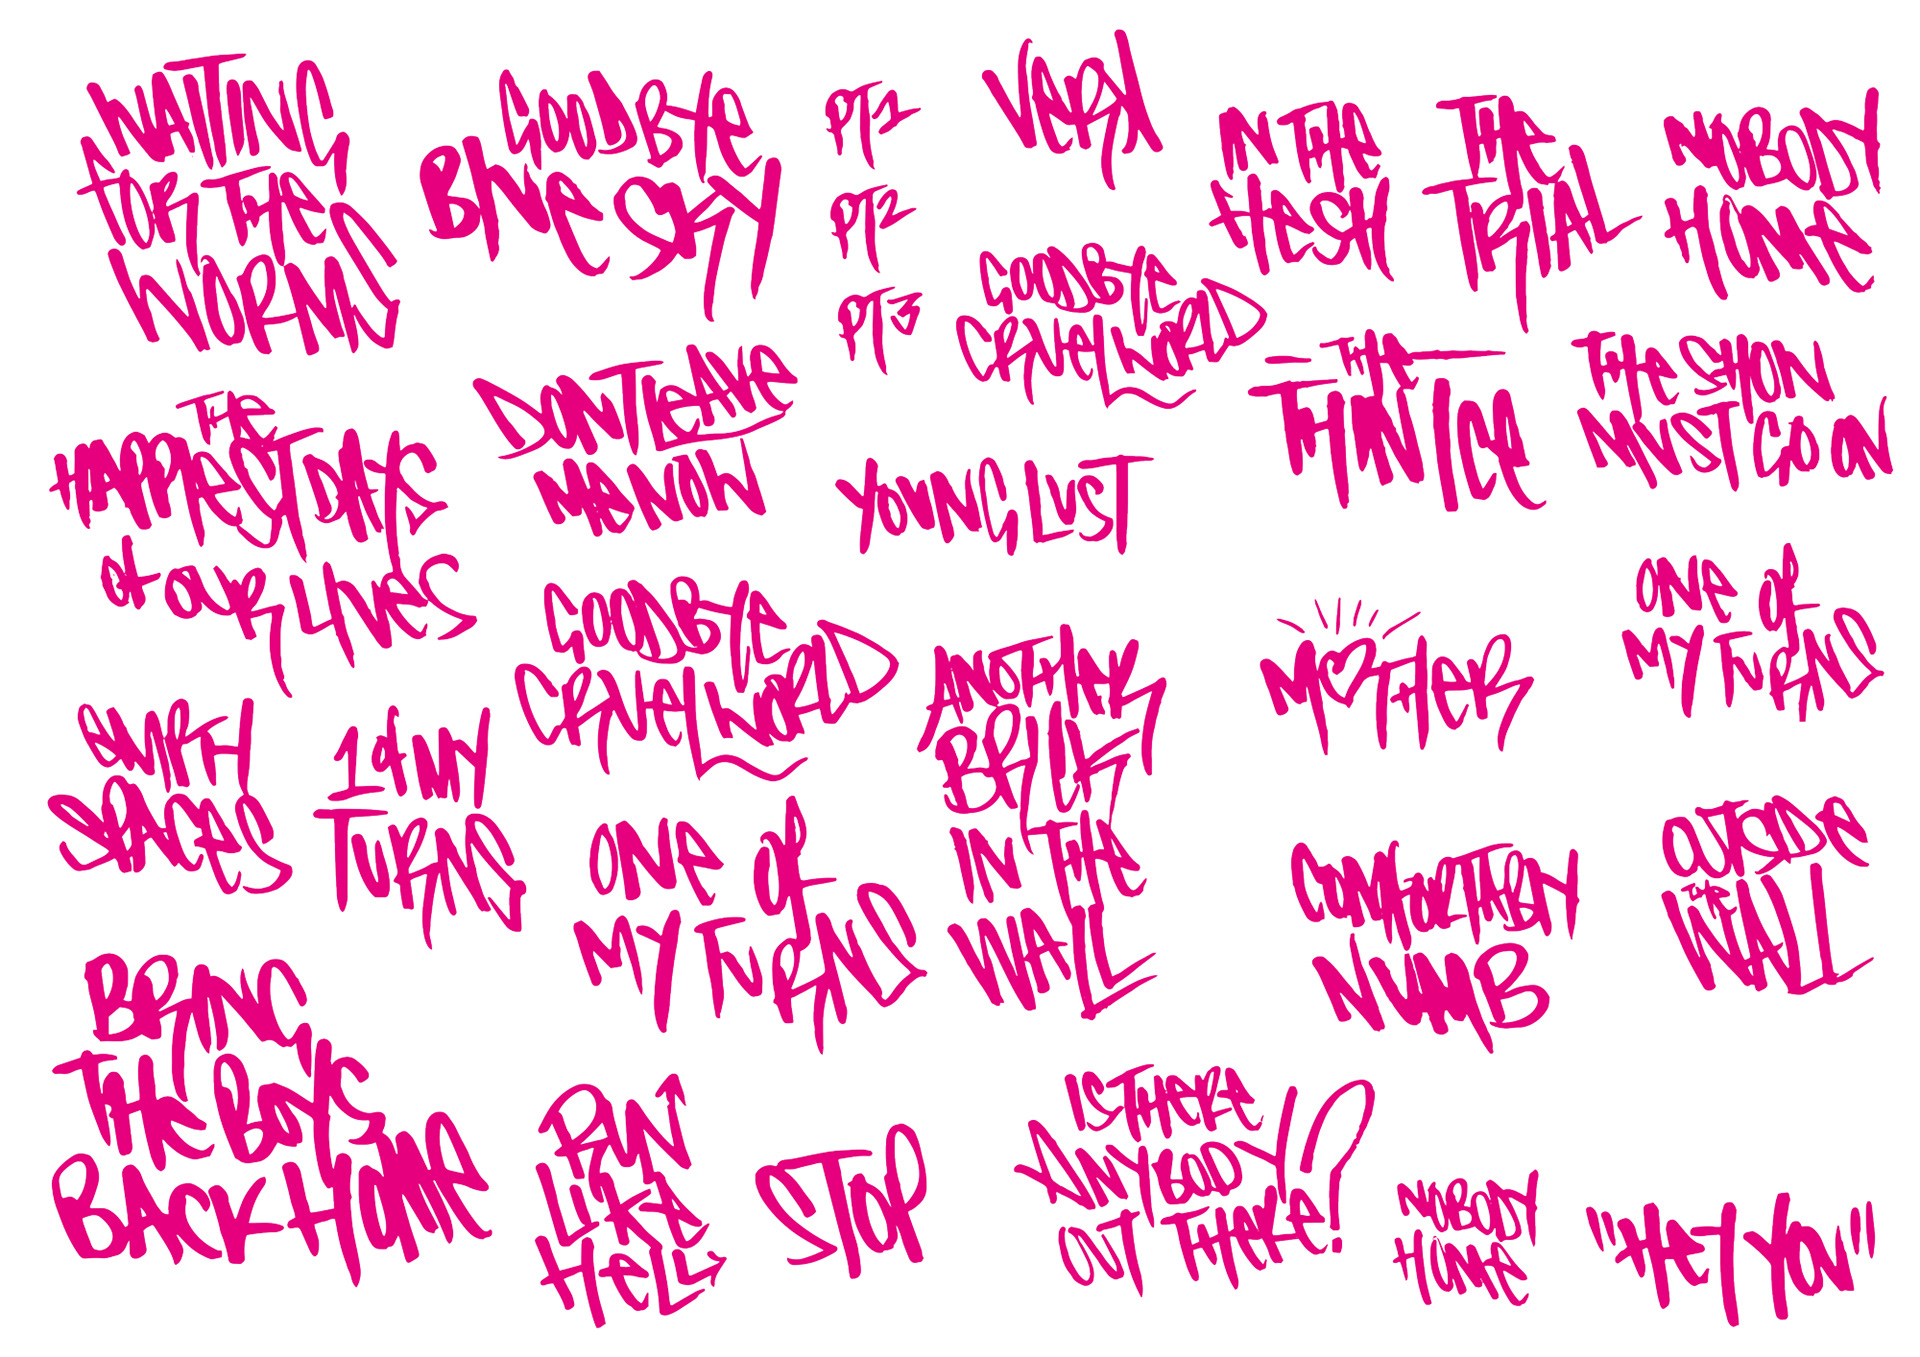 WAITING
FOR THE
WORMS
GOODBYE
BLUE SKY
PT1
PT2
PT3
VERA
IN THE
FLESH
THE
TRIAL
NOBODY
HOME
GOODBYE
CRUEL WORLD
THE
HAPPIEST DAYS
OF OUR LIVES
DONT LEAVE
ME NOW
YOUNG LUST
THE
THIN ICE
THE SHOW
MUST GO ON
GOODBYE
CRUEL WORLD
ANOTHER
BRICK
IN THE
WALL
MOTHER
ONE OF
MY TURNS
EMPTY
SPACES
1 OF MY
TURNS
ONE OF
MY TURNS
COMFORTABLY
NUMB
OUTSIDE
THE
WALL
BRING
THE BOYS
BACK HOME
RUN
LIKE
HELL
STOP
IS THERE
ANYBODY
OUT THERE?
NOBODY
HOME
"HEY YOU"